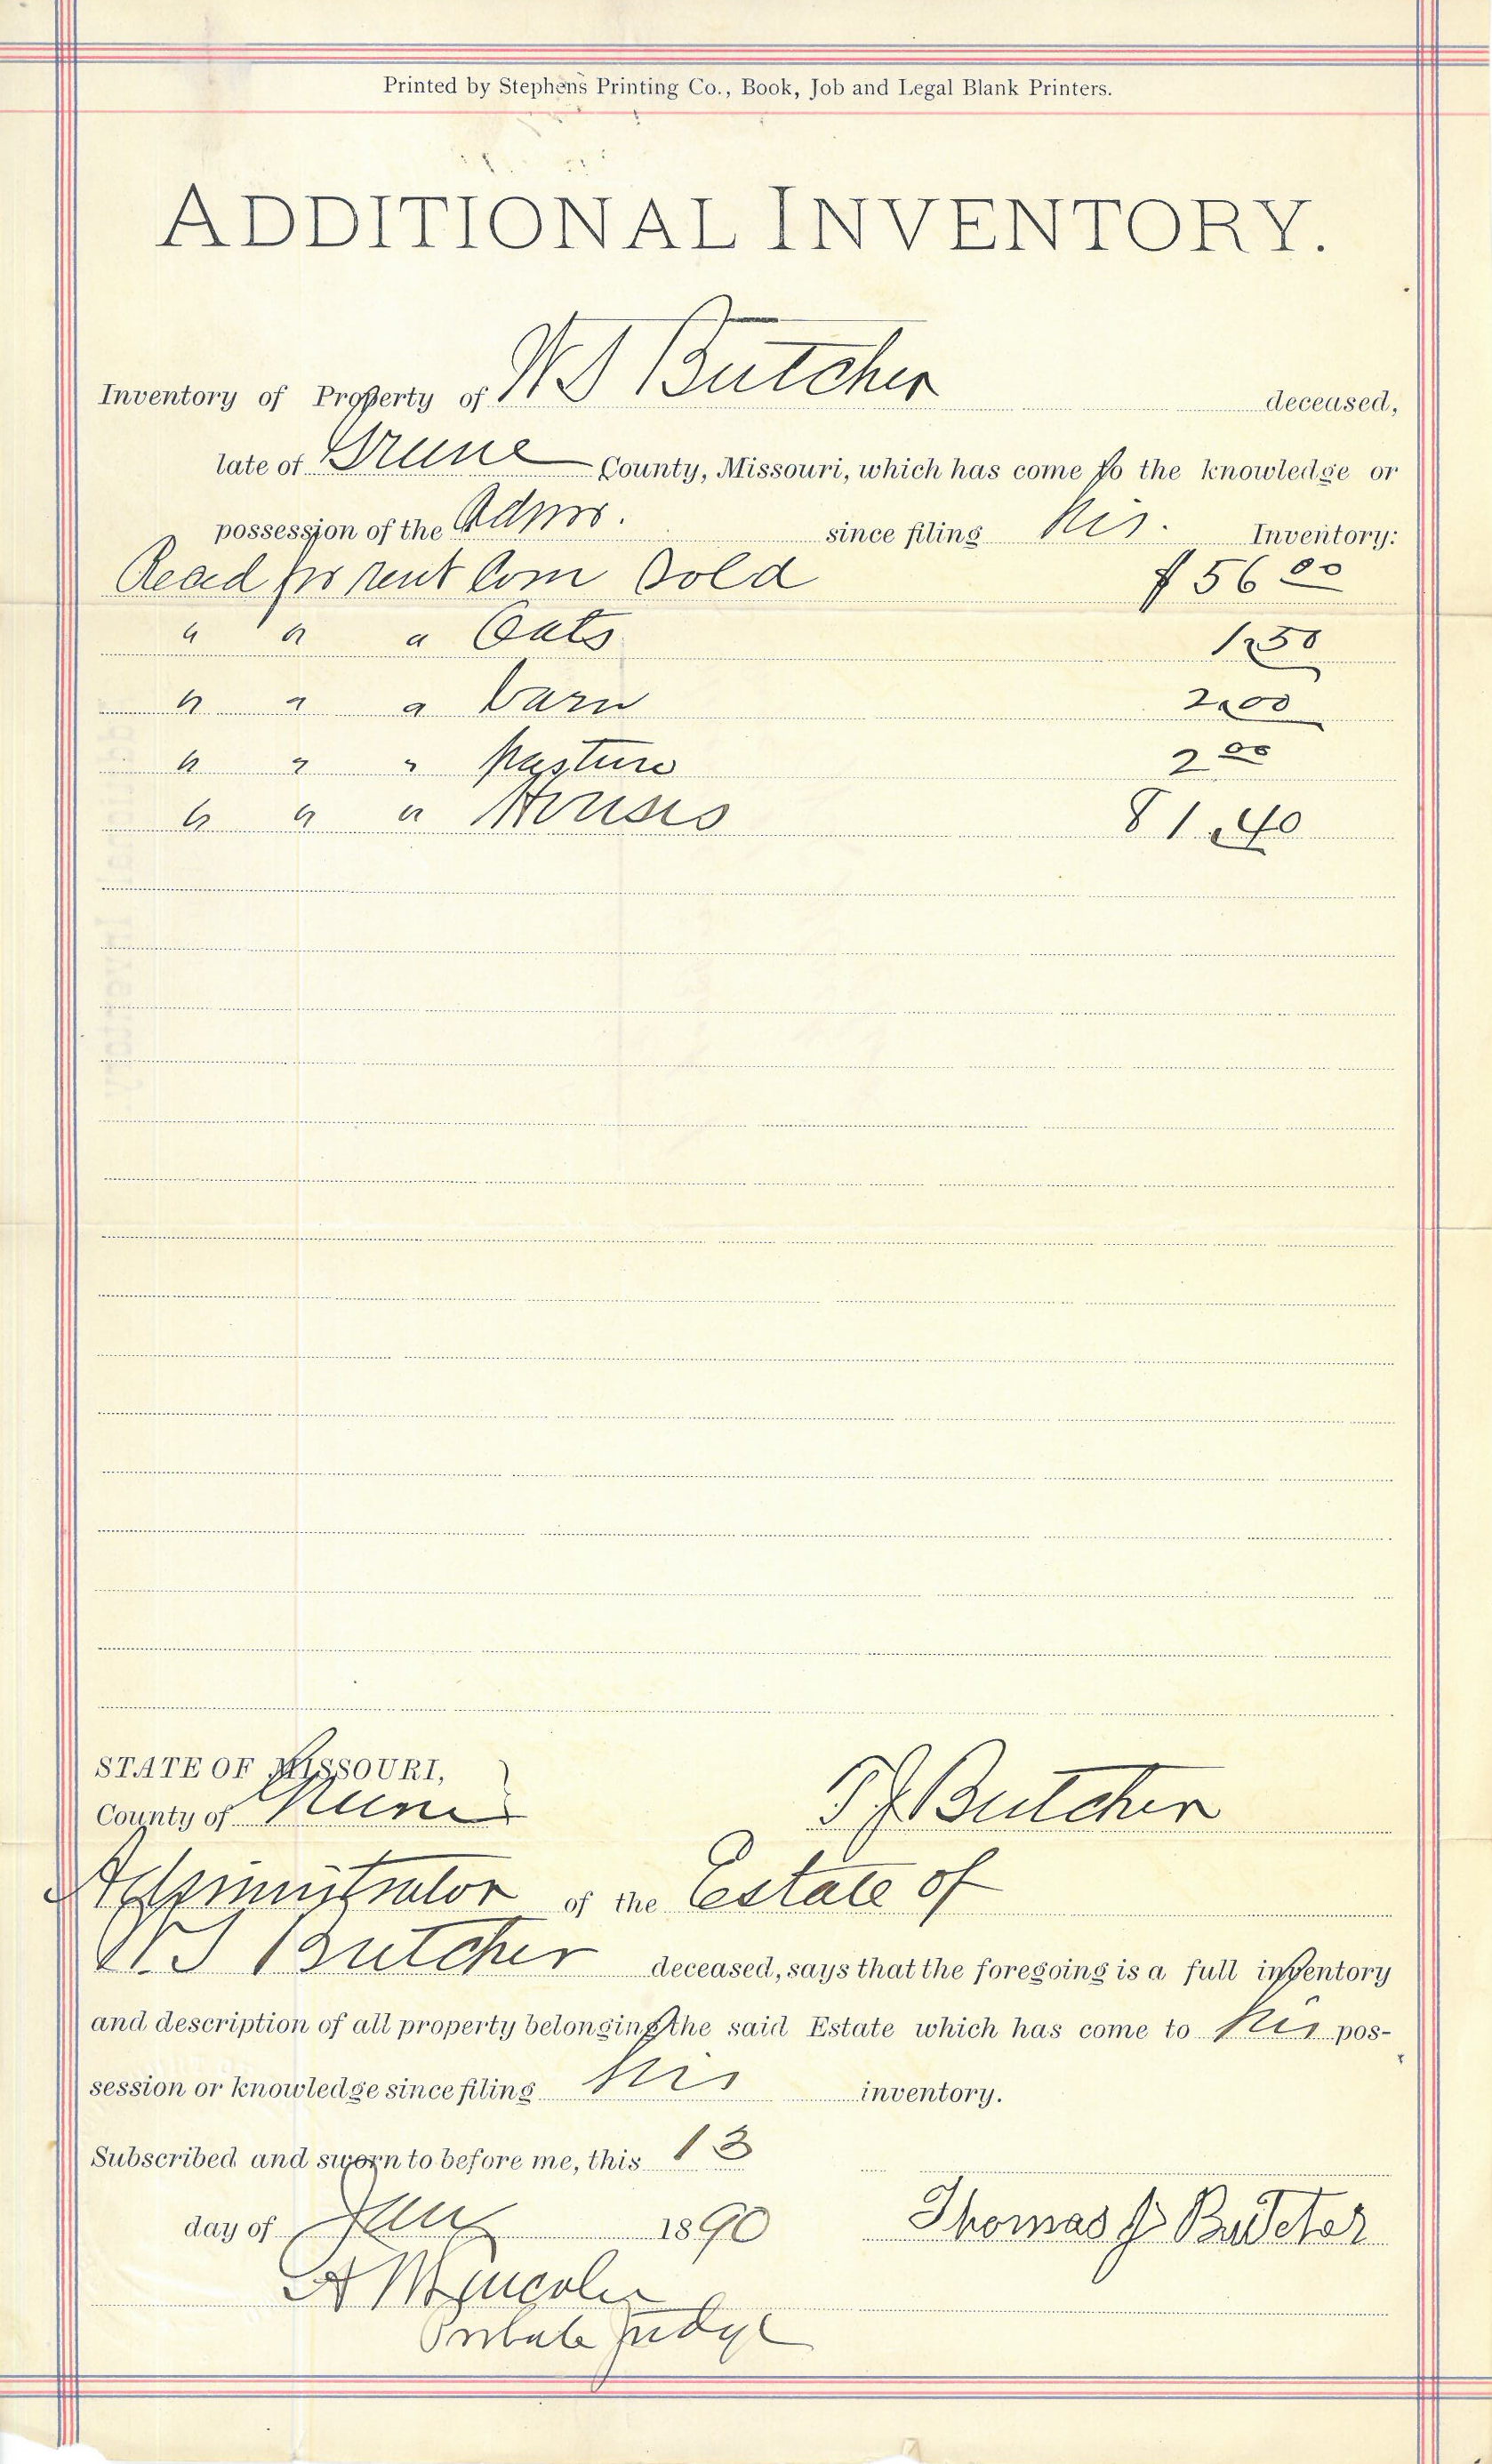 Printed by Stephens Printing Co., Book, Job and Legal Blank Printers.
ADDITIONAL INVENTORY.
Inventory of Property of W S Butcher deceased,
late of Greene County, Missouri, which has come to the knowledge or
possession of the Admr. since filing his. Inventory:
Recd for rent Corn Sold $56 00
" " " Oats 1250
" " " barn 2.00
" " " pasture 2 00
" " " Houses 81.40
STATE OF MISSOURI,
County of Greene } T J Butcher
Administrator of the Estate of
W S Butcher deceased, says that the foregoing is a full inventory
and description of all property belonging the said Estate which has come to his pos-
session or knowledge since filing his inventory.
Subscribed and sworn to before me, this 13
day of Jany 1890 Thomas J Butcher
Probate Judge